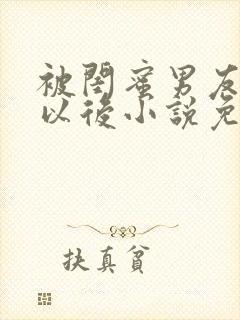 被閨蜜男友
以後小說免
扶真貧